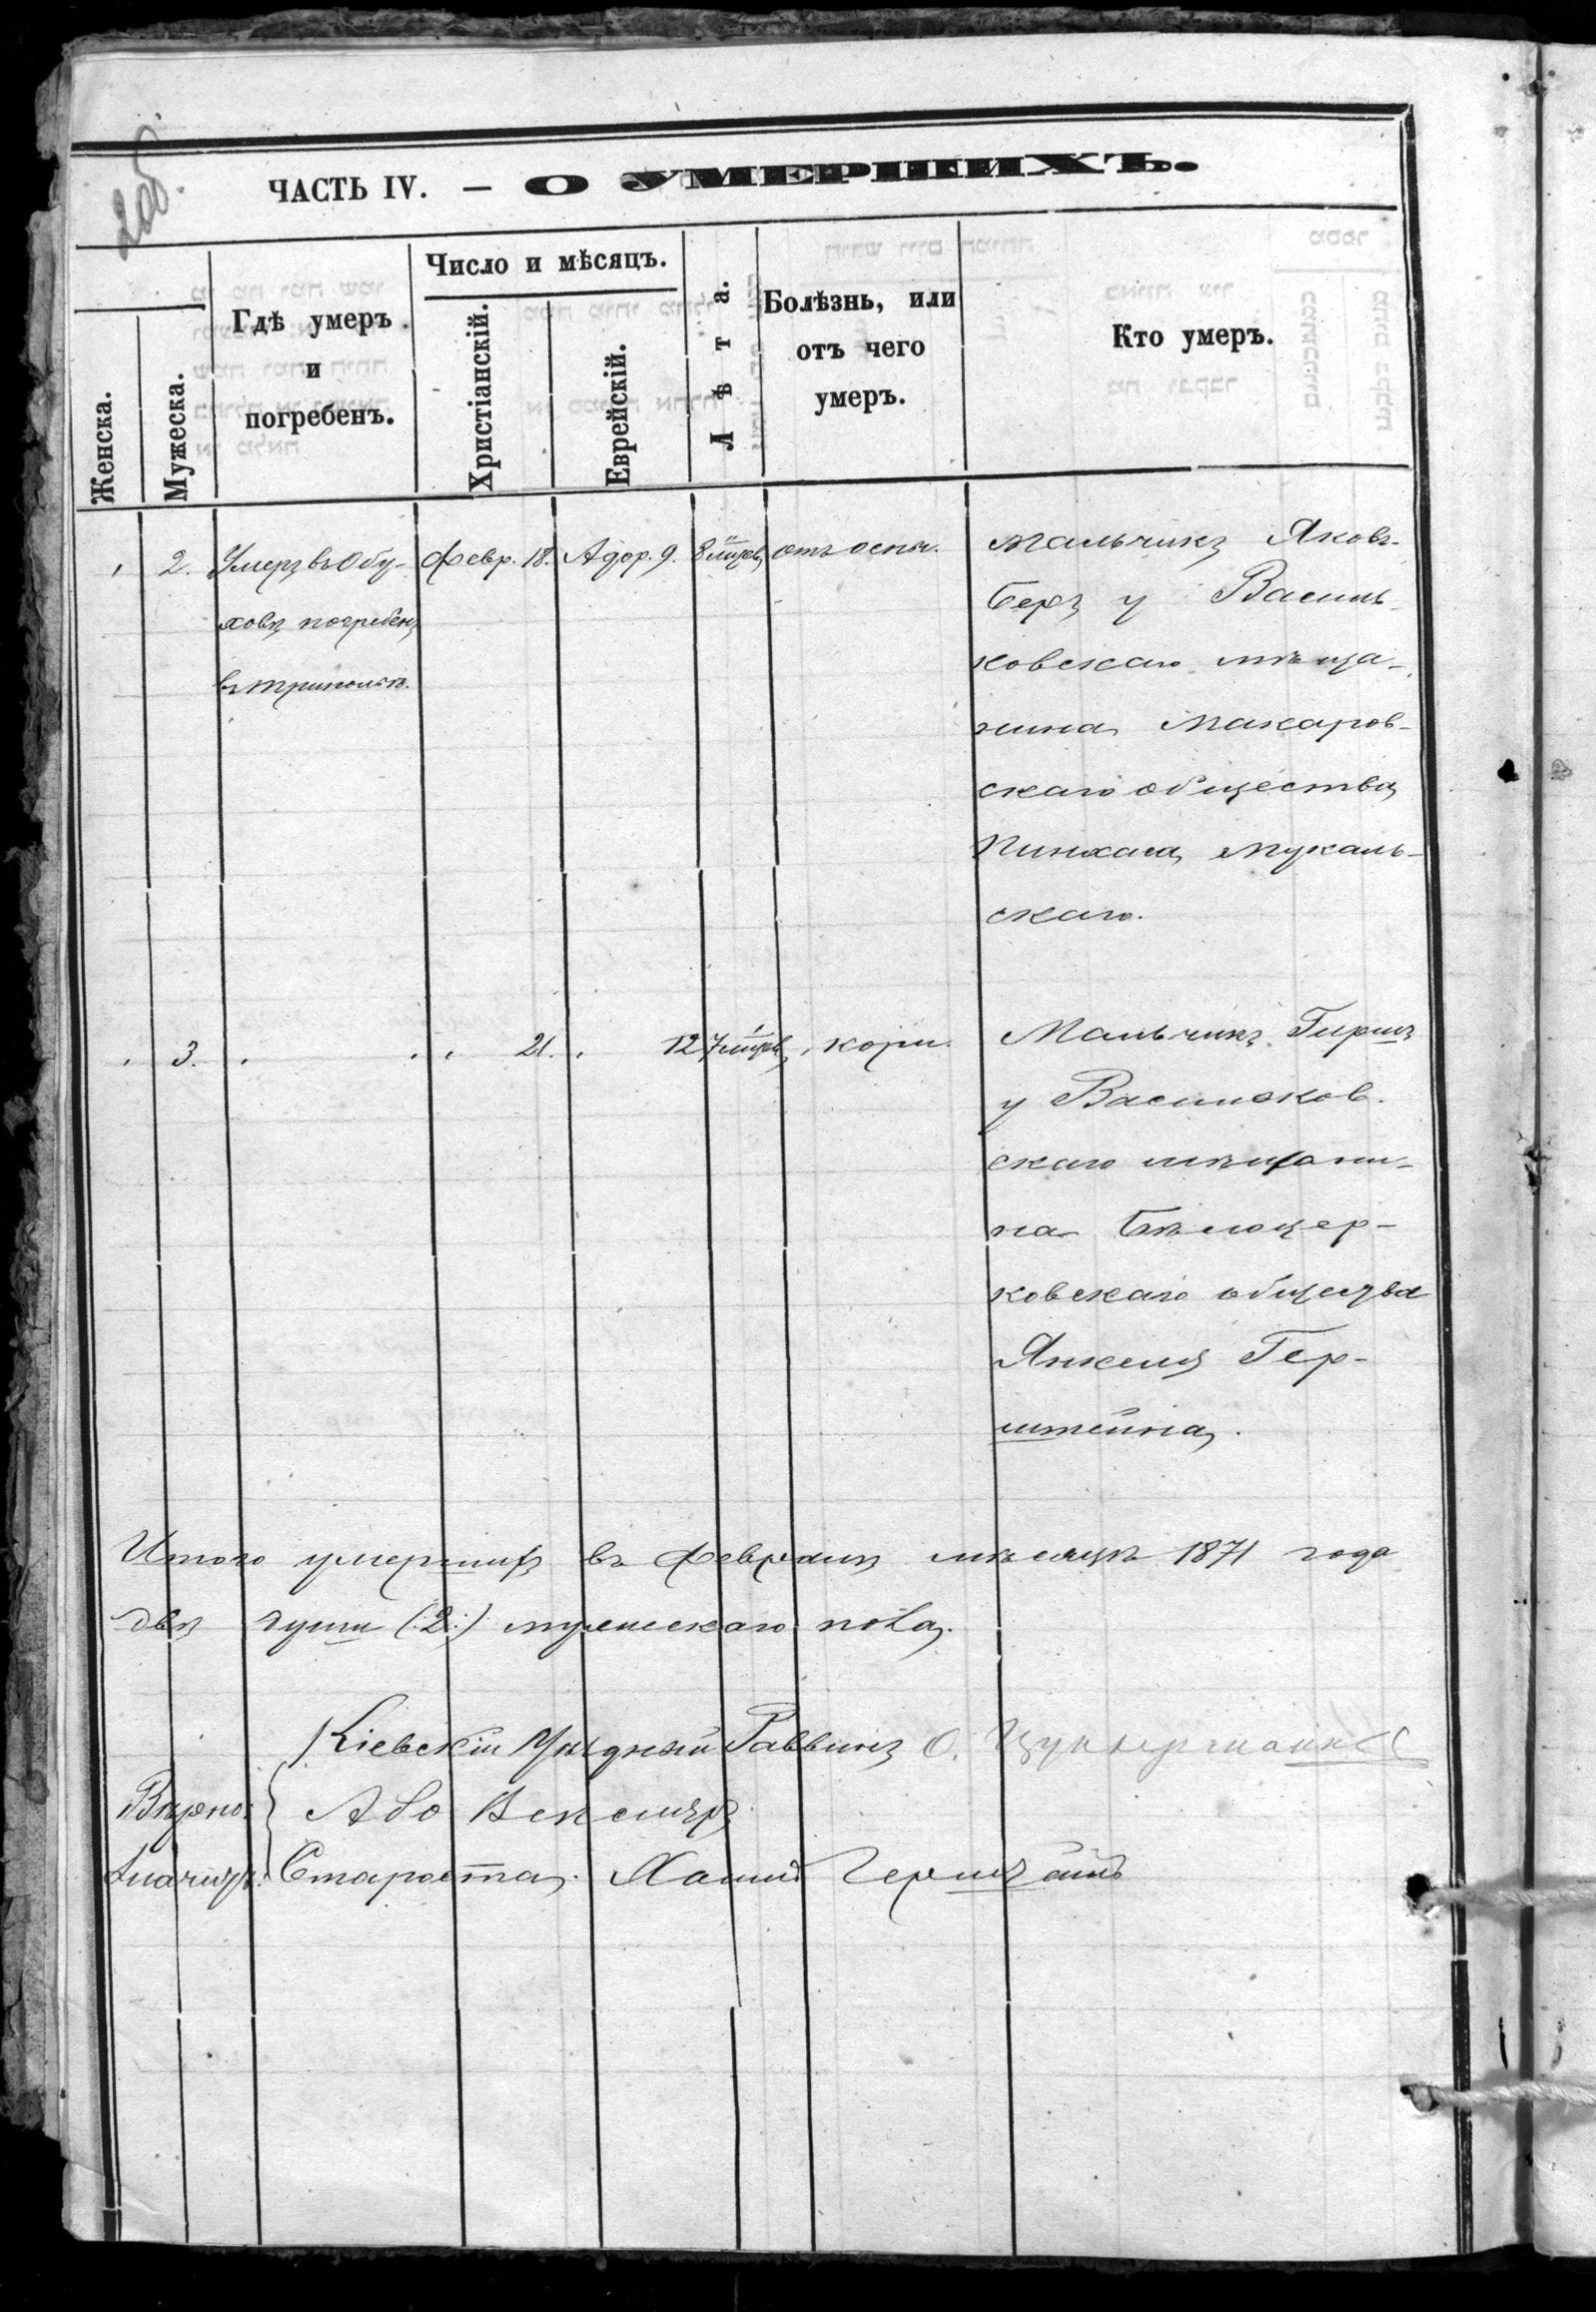 2об.
ЧАСТЬ IV. — О УМЕРШИХЪ.
Женска.
Мужеска.
Гдѣ умеръ
и
погребенъ.
Число и мѣсяцъ.
Христіанскій.
Еврейскій.
Лѣта.
Болѣзнь, или
отъ чего
умеръ.
Кто умеръ.
2. Умеръ въ Обу- Февр. 18. Адор. 9. 8 м҃цевъ отъ оспы. Мальчикъ Яковъ-
ховѣ погребенъ Беръ у Василь-
въ Триполѣ. ковскаго мѣща-
нина Макаров-
скаго общества
Пинхаса Мукаль-
скаго.
" 3. " " " 21. " 12 7 м҃цевъ " кори. Мальчикъ Гиршъ
у Васильков-
скаго мѣщани-
на Бѣлоцер-
ковскаго общества
Янкеля Гер-
штейна.
Итого умершихъ въ Февралѣ мѣсяцѣ 1871 года
двѣ души (:2:) мужескаго пола.
Кіевскій Уѣздный Раввинъ О. Цукерманъ
Вѣрно: Або Векслеръ
Староста Хаимъ Герштейнъ